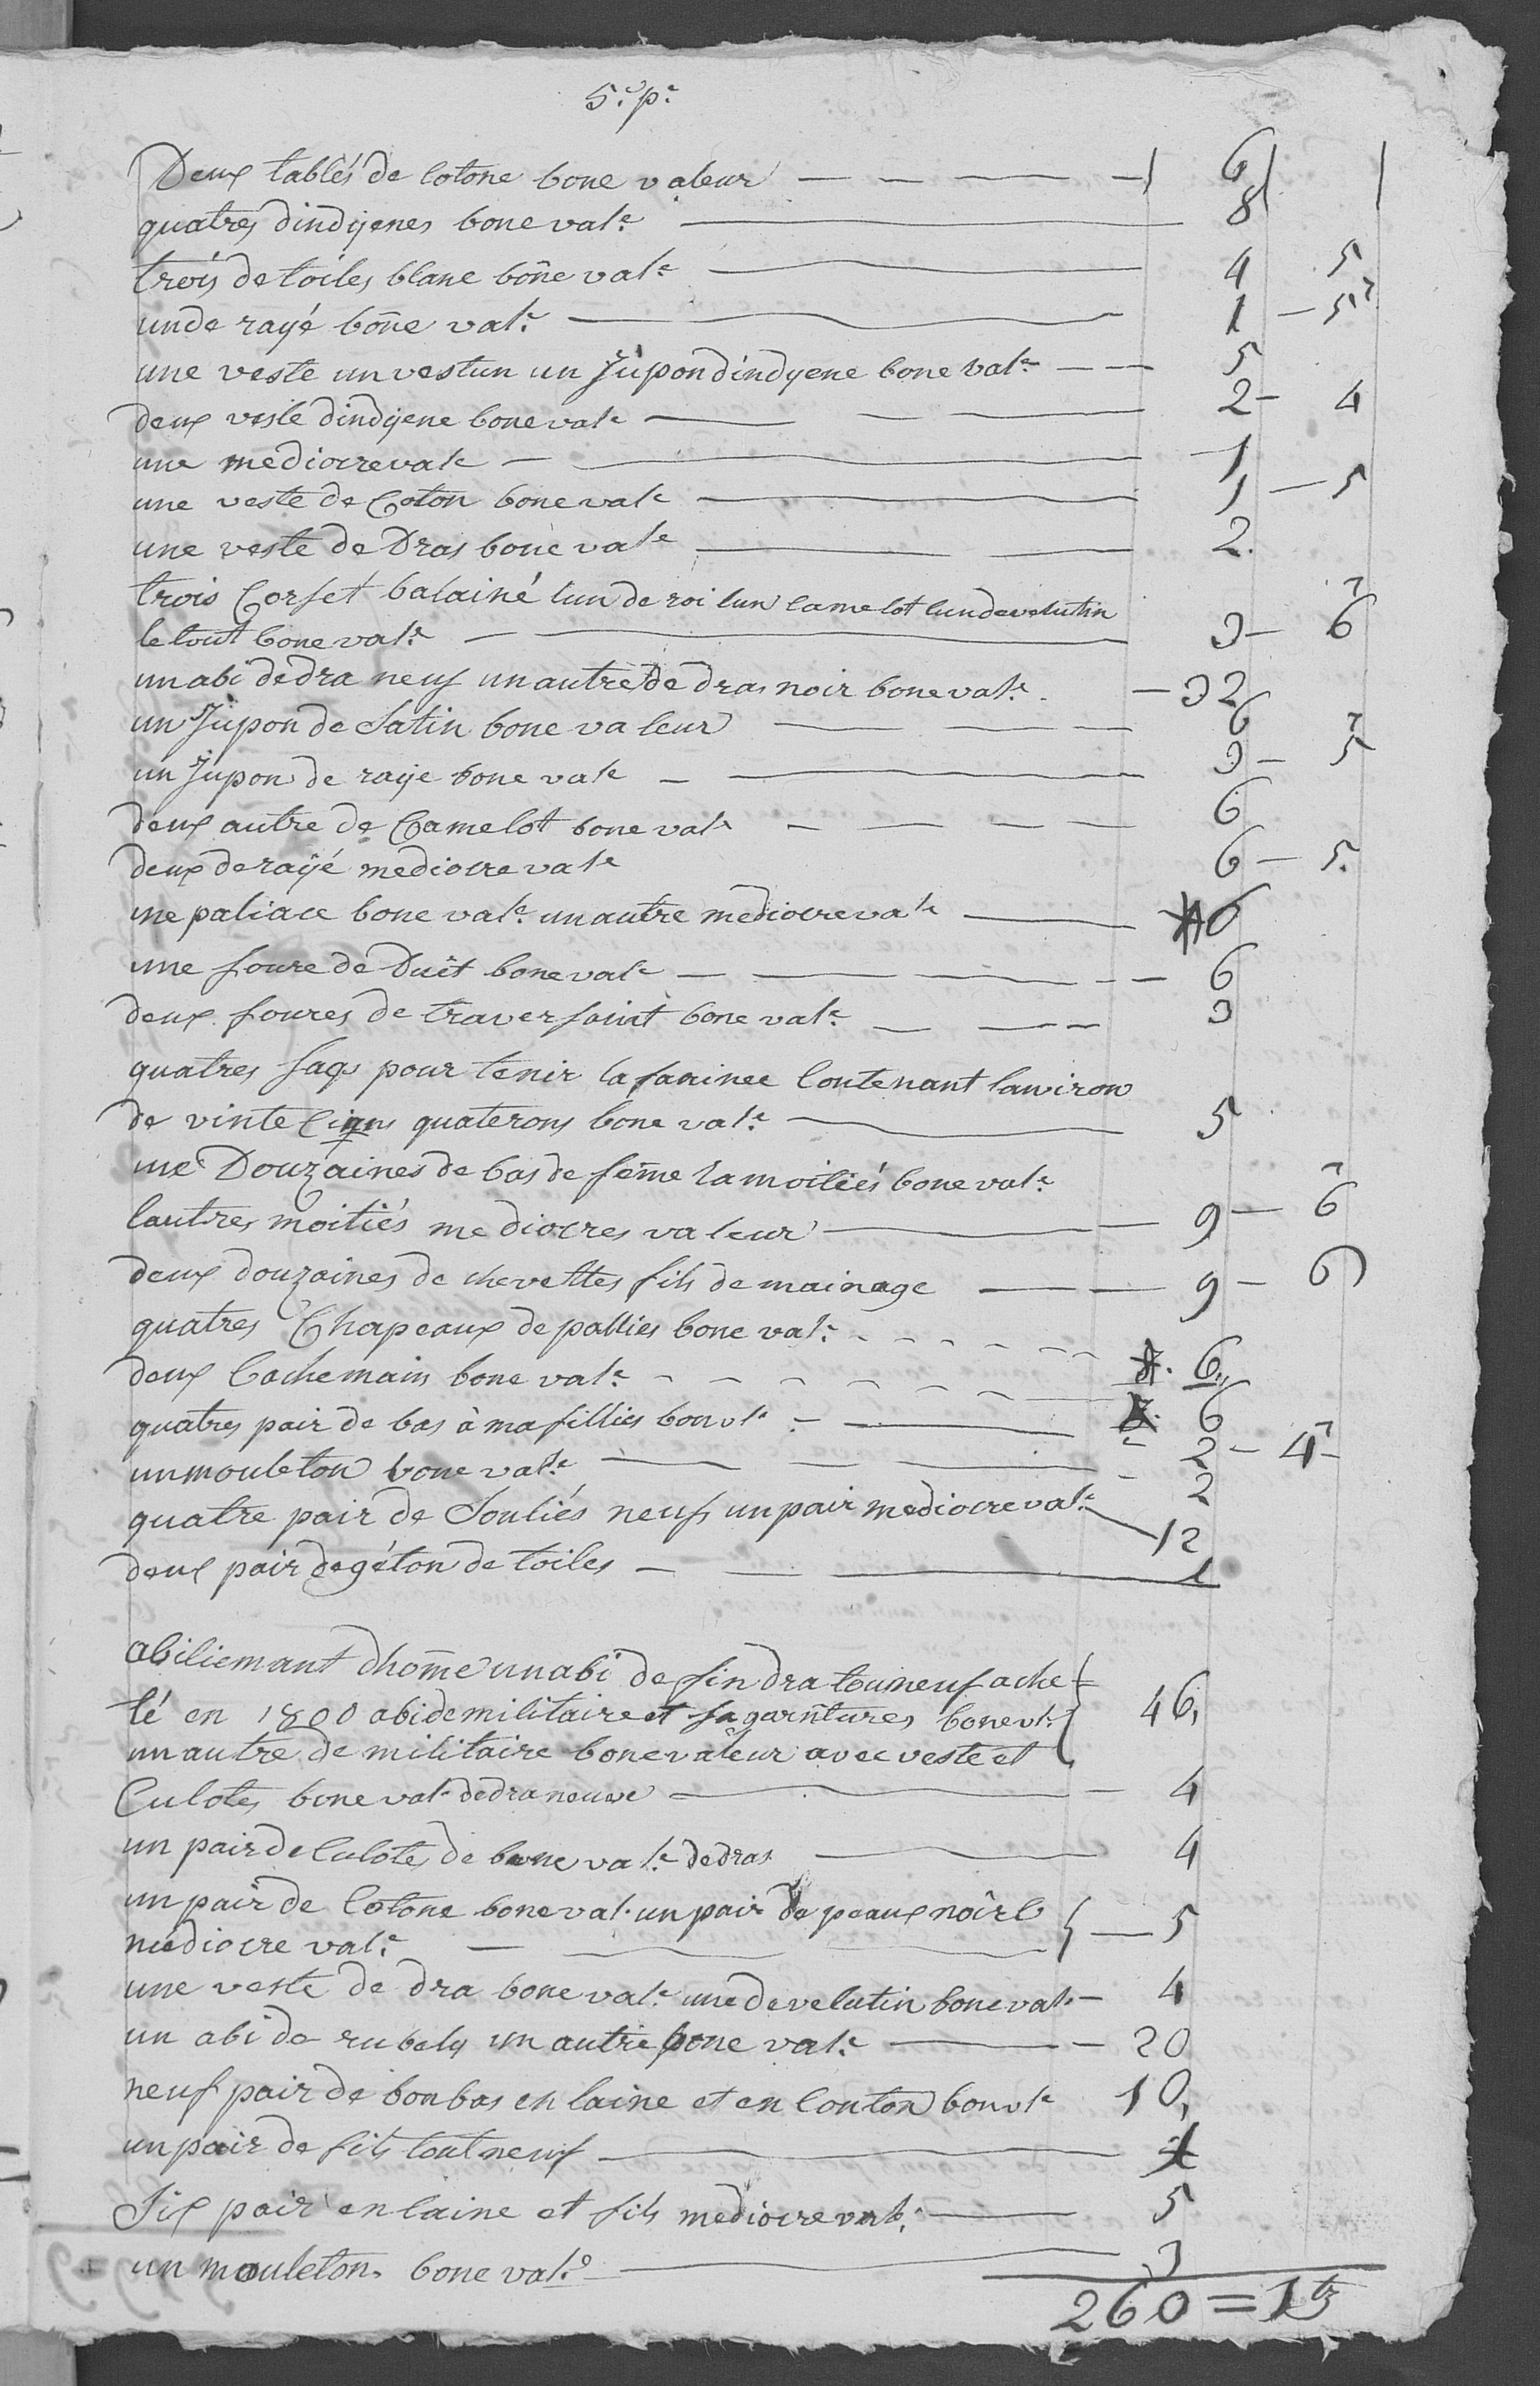 5.e p.e
Deux tablés de cotone bone valeur 6
quatres dindyenes bone val.e 8
trois de toiles blanc bone val.e 4 5
un de rayé bone val.e 1 - 5
une veste un vestun un Jupon dindyene bone val.e 5
deux veste dindyene bone val.e 2 - 4
une mediocre val.e 1
une veste de Coton bone val.e 1 - 5
une veste de Dras bone val.e 2.
trois Corset balainé lun de roi lun camelot lun de velutin
le tout bone val.e 3 - 6
un abi de dra neuf un autre de dras noir bone val.e 32
un Jupon de Satin bone valeur 6
un Jupon de raye bone val.e 3 - 5
deux autre de Camelot bone val.e 6
deux de rayé mediocre val.e 6 - 5.
une paliace bone val.e un autre mediocre val.e 6
une foure de Duit bone val.e 6
deux foures de traversaint bone val.e 3
quatres saqs pour tenir la farinee Contenant lanviron
de vinte Cinqs quaterons bone val.e 5
une Douzaines de bas de feme la moitiés bone val.e
lautres moitiés mediocres valeur 9 - 6
deux douzaines de chevettes fils de mainage 9 - 6
quatres Chapeaux de pallies bone val.e
deux Cachemain bone val.e 6
quatres pair de bas à ma fillies bon vl.e 6
un mouleton bone val.e 2 - 4
quatre pair de Souliés neufs un pair mediocre val.e 2
12
deux pair de géton de toiles 1
abiliemant dhome un abi de fin dra tou neuf ache=
té en 1800 abi de militaire et sa garnitures bone vl.e 46,
un autre de militaire bone valeur avec veste et
Culotes bone val.e de dra neuve 4
un pair de Culotes de bone val.e de dras 4
un pair de Cotone bone val. un pair de peaux noire
mediocre val.e 5
une veste de dra bone val.e une de velutin bone val. 4
un abi de rubely un autre bone val.e 20
neuf pair de bon bas en laine et en Conton bon vl.e 10,
un pair de fils tout neuf 1
Six pair en laine et fils mediocre val. 5
un mouleton bone val.e 3
260 = 13